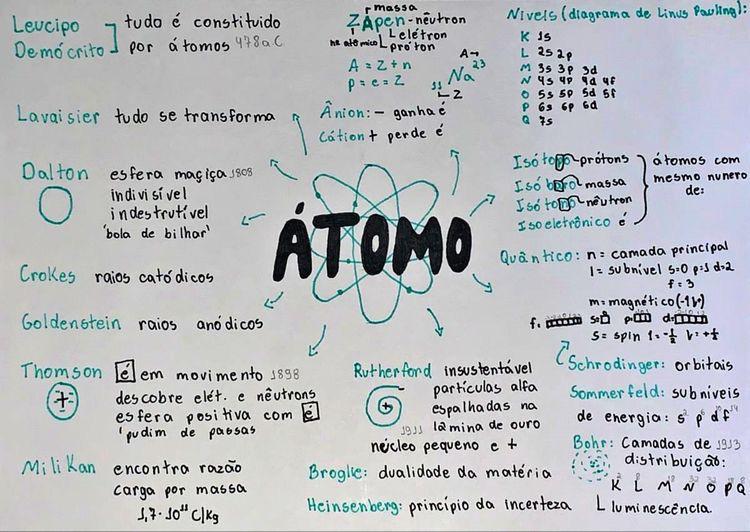 Leucipo
Demócrito
tudo é constituido
por átomos 478 a C
Lavaisier tudo se transforma
Dalton esfera maçiça 1808
indivisível
indestrutível
'bola de bilhar'
Crokes raios catódicos
Goldenstein raios anódicos
Thomson é em movimento 1898
descobre elét. e nêutrons
esfera positiva com é
'pudim de passas
Milikan encontra razão
carga por massa
massa
ZApen-nêutron
nº atômico elétron
próton
A = Z + n
p = e = Z
A→
11 Na 23
Z
Ânion: - ganha é
Cátion + perde é
ÁTOMO
Níveis (diagrama de Linus Pauling):
K 1s
L 2s 2p
M 3s 3p 3d
N 4s 4p 4d 4f
O 5s 5p 5d 5f
P 6s 6p 6d
Q 7s
Isótopo prótons
Isóbaro massa
Isótono nêutron
Isoeletrônico é
átomos com
mesmo nunero
de:
Quântico: n = camada principal
l = subnível s=0 p=1 d=2
f = 3
m = magnético (-l l)
f= s= p= d=
s = spin ↑=-½ ↓=+½
Schrodinger: orbitais
Sommerfeld: subníveis
de energia: s² p⁶ d¹⁰ f¹⁴
Bohr: Camadas de 1913
distribuição:
K L M N O P Q
Luminescência.
Rutherford insustentável
partículas alfa
espalhadas na
1911 lâmina de ouro
núcleo pequeno e +
Broglie: dualidade da matéria
Heinsenberg: princípio da incerteza